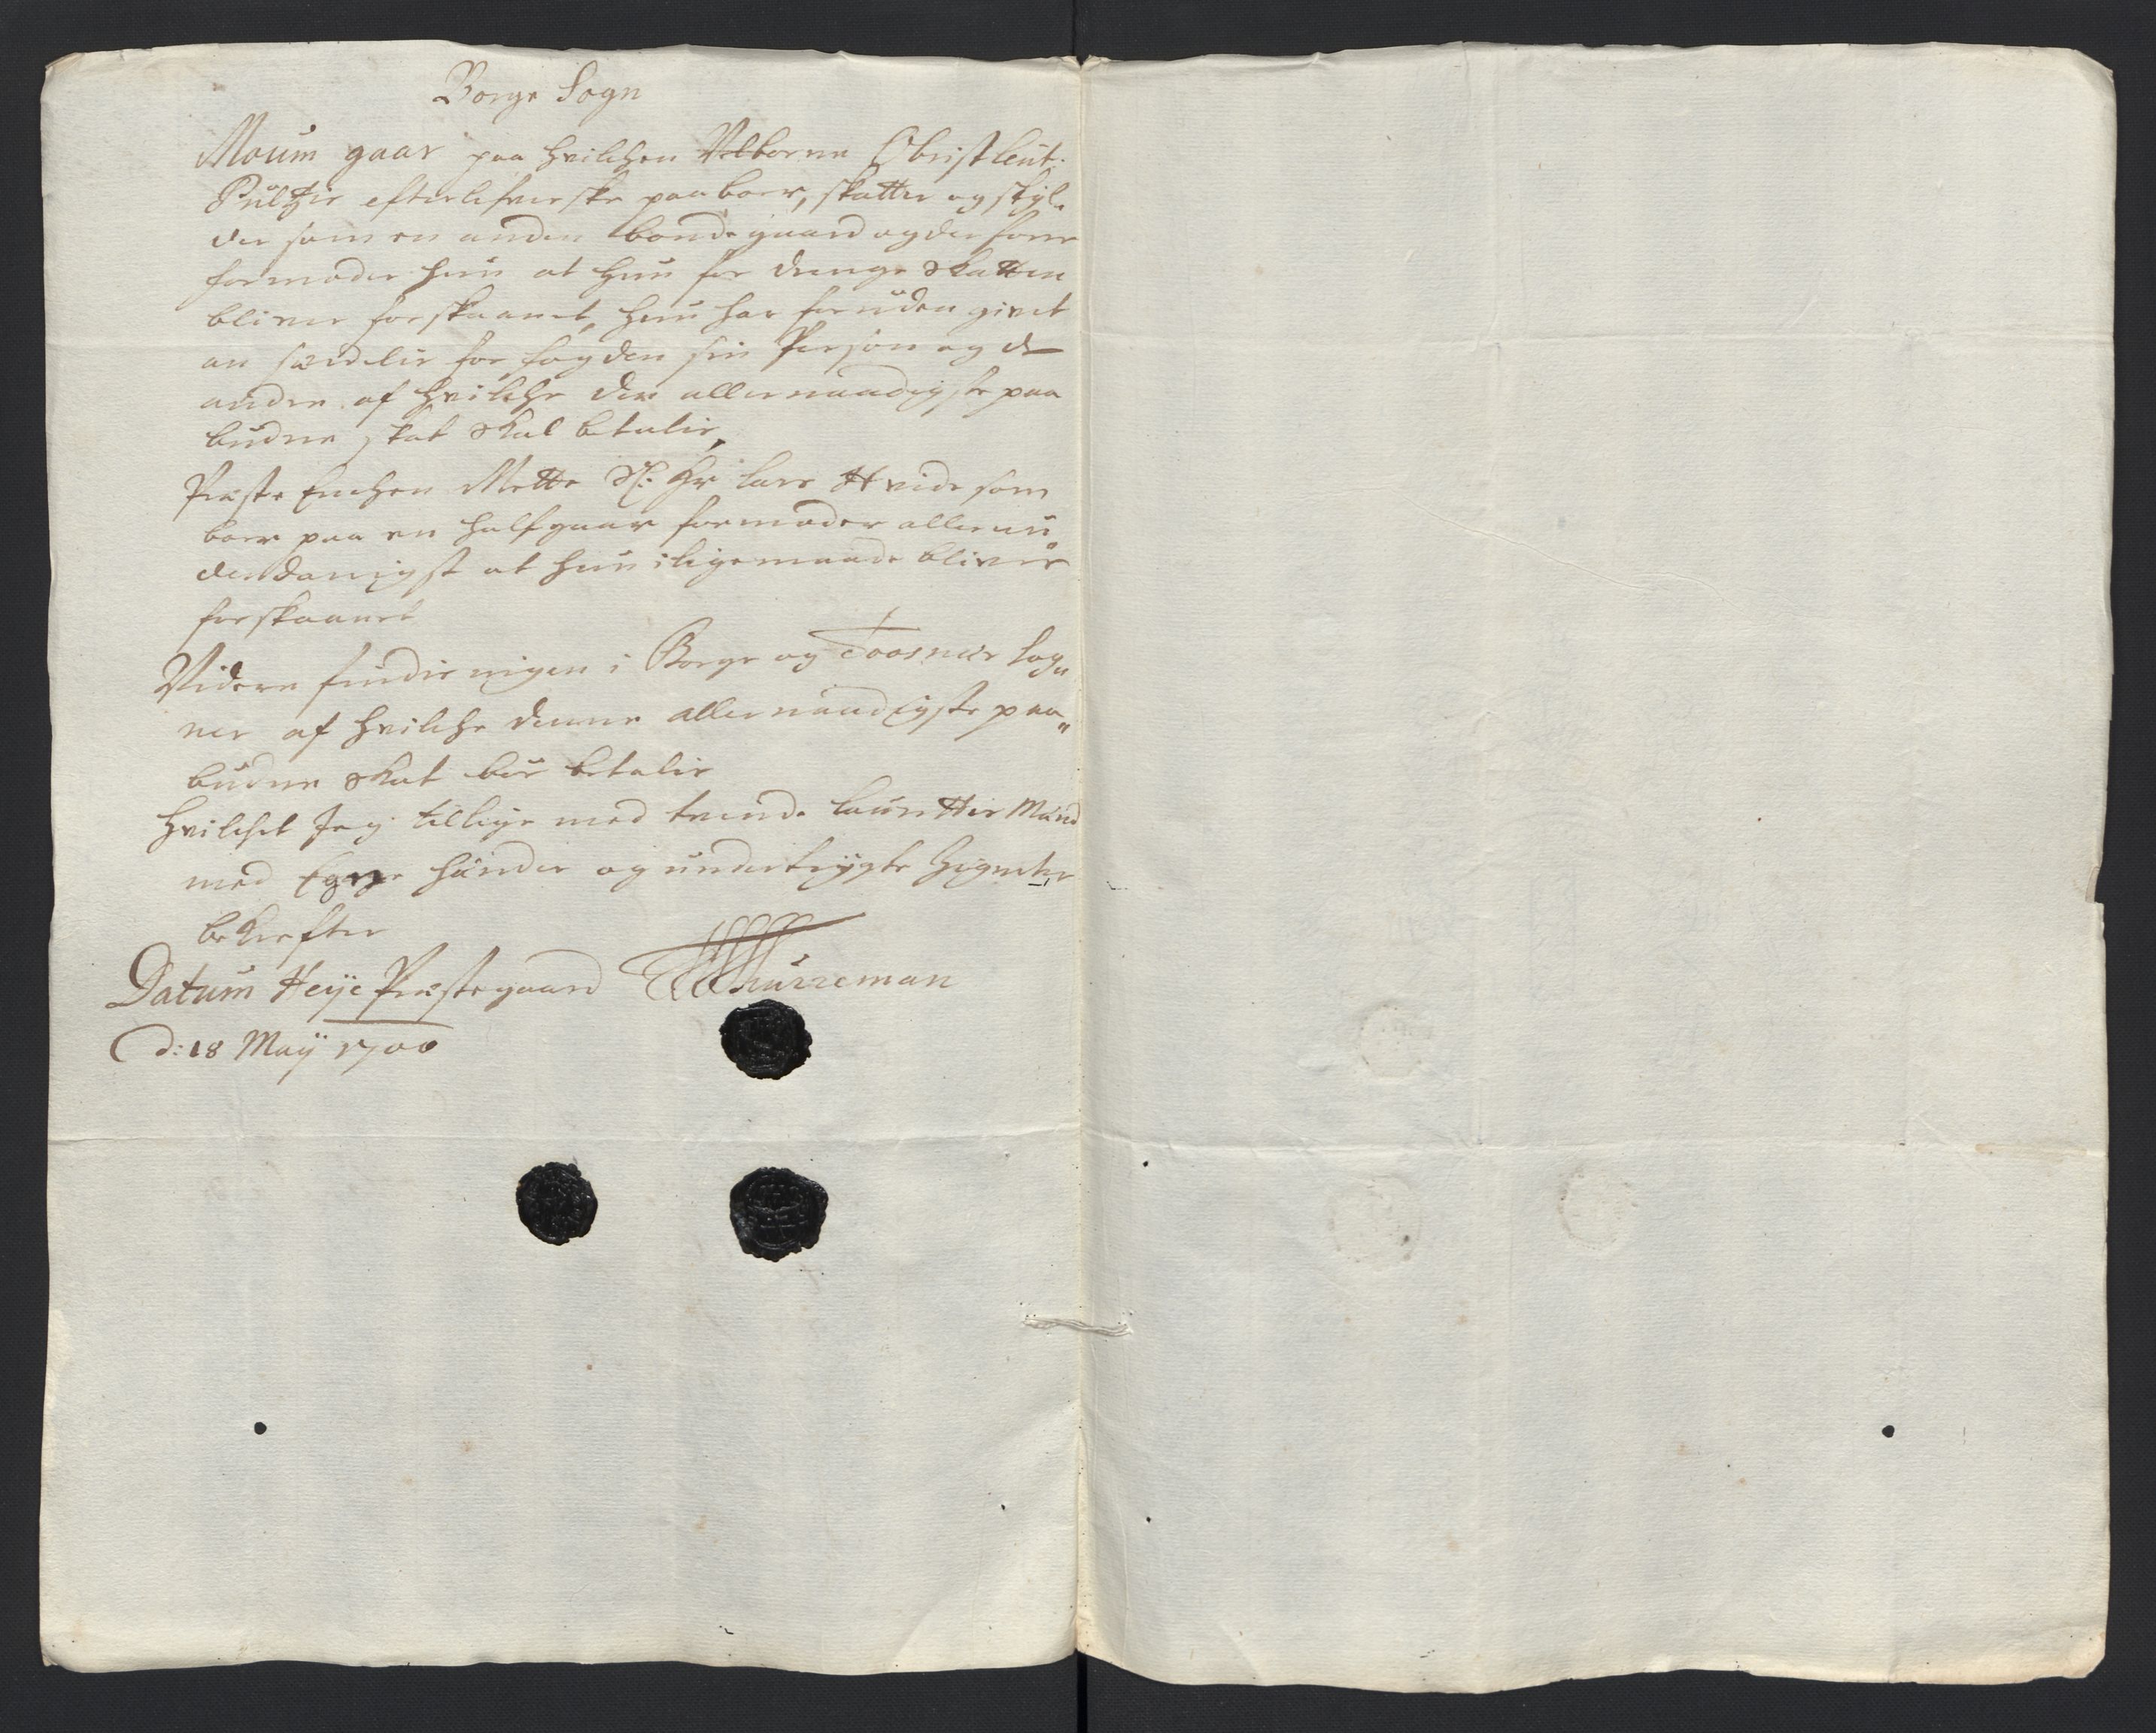 Borge Sogn
Moum gaar paa hvilchen Velborne Obristleut:
Pultzis efterlefverske paaboer, skatter og skyl„
der som en anden bondegaard og der forre
formoder hun at hun for denne skatten
bliver forskaanet, hun har foruden givet
an for fogden sin Person og de
andre af hvilche den allernaadigste paa
budne skat skal betalis,
Præste Enchen Mette Sl: Hr Lars Hvids som
boer paa en half gaar formoder alleru„
derdanigst at hun i ligemaade bliver
forskaanet
Videre findis ingen i Borge og Toosnes Sog„
ner af hvilche denne allernaadigste paa„
budne skat bør betalis
Hvilchet Jeg tillige med tvende Laurettis Mænd
med Egne hænder og undertrygte Zigneter
bekrefter
Datum Præstegaard
d: 18 Maij 1700